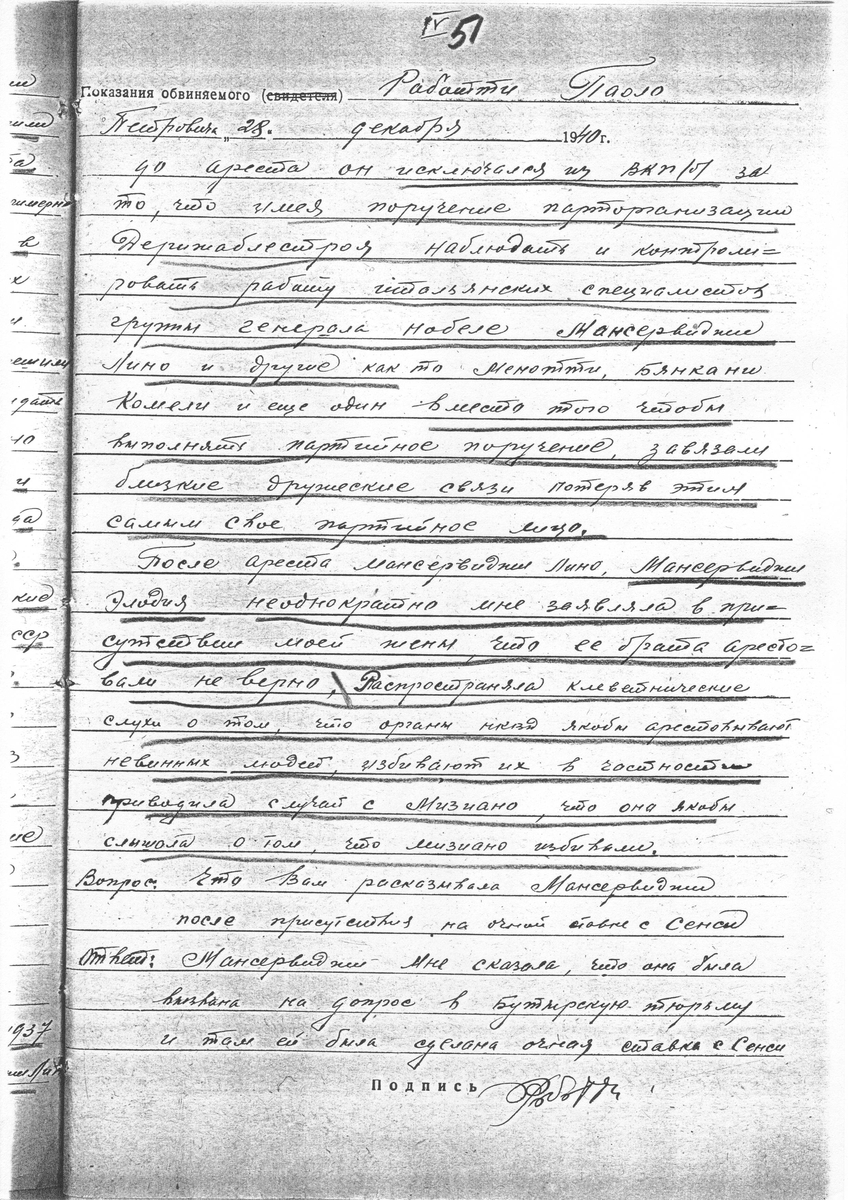 IV 51
Показания обвиняемого (свидетеля) Работти Паоло
Петровича „28" декабря 1940 г.
до ареста он исключался из ВКП/б/ за
то, что имея поручение парторганизации
Дерижаблестроя наблюдать и контроли=
ровать работу итальянских специалистов
группы генерала Нобеле Мансервиджи
Лино и другие как то Менотти, Бянкани
Комели и еще один вместо того чтобы
выполнять партийное поручение, завязали
близкие дружеские связи потеряв этим
самым свое партийное лицо.
После ареста Мансервиджи Лино, Мансервиджи
Элодия неоднократно мне заявляла в при=
сутствии моей жены, что ее брата аресто=
вали не верно, Распространяла клеветнические
слухи о том, что органы НКВД якобы арестовывают
невинных людей, избивают их в частности
приводила случай с Мизиано, что она якобы
слышола о том, что Мизиано избивали.
Вопрос: Что Вам расказывала Мансервиджи
после присутствия на очной ставке с Сенси
Ответ: Мансервиджи мне сказала, что она была
вызвана на допрос в Бутырскую тюрьму
и там ей была сделана очная ставка с Сенси
Подпись Работти
ми
та
примерно
в
х
и
решили
но
и
да
кие
ссср
ие
1937